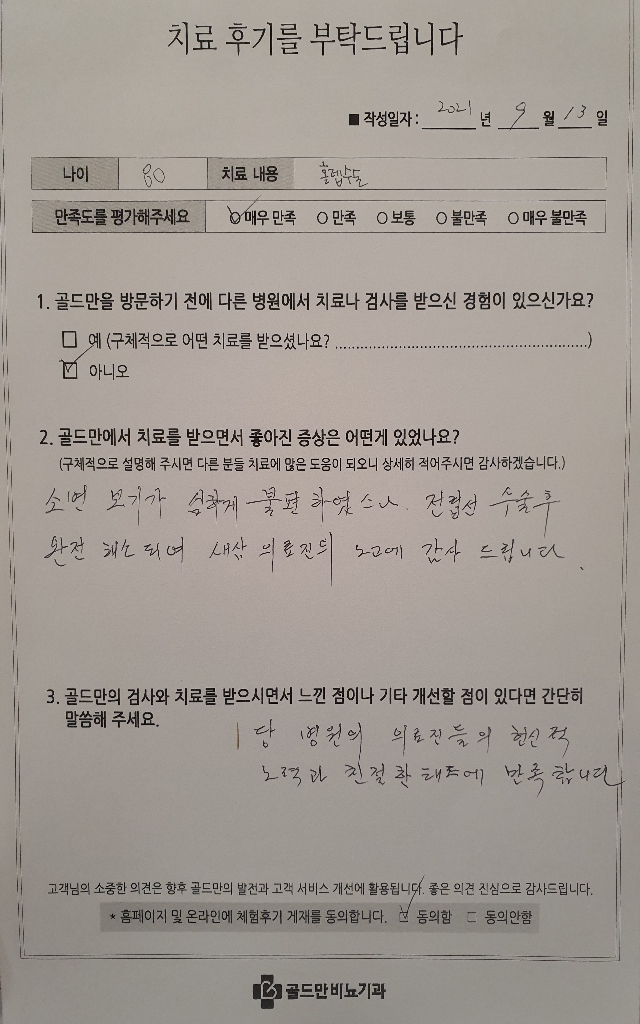 치료 후기를 부탁드립니다
■ 작성일자 : 2021 년 9 월 13 일
나이 80 치료 내용 홀렙수술
만족도를 평가해주세요 매우 만족 만족 보통 불만족 매우 불만족
1. 골드만을 방문하기 전에 다른 병원에서 치료나 검사를 받으신 경험이 있으신가요?
예 (구체적으로 어떤 치료를 받으셨나요? ........................................................)
아니오
2. 골드만에서 치료를 받으면서 좋아진 증상은 어떤게 있었나요?
(구체적으로 설명해 주시면 다른 분들 치료에 많은 도움이 되오니 상세히 적어주시면 감사하겠습니다.)
소변 보기가 심하게 불편 하였으나. 전립선 수술후
완전 해소 되며 새삼 의료진의 노고에 감사 드립니다.
3. 골드만의 검사와 치료를 받으시면서 느낀 점이나 기타 개선할 점이 있다면 간단히
말씀해 주세요.
당 병원의 의료진들의 헌신적
노력과 친절한 태도에 만족 합니다
고객님의 소중한 의견은 향후 골드만의 발전과 고객 서비스 개선에 활용됩니다. 좋은 의견 진심으로 감사드립니다.
* 홈페이지 및 온라인에 체험후기 게재를 동의합니다. 동의함 동의안함
골드만비뇨기과